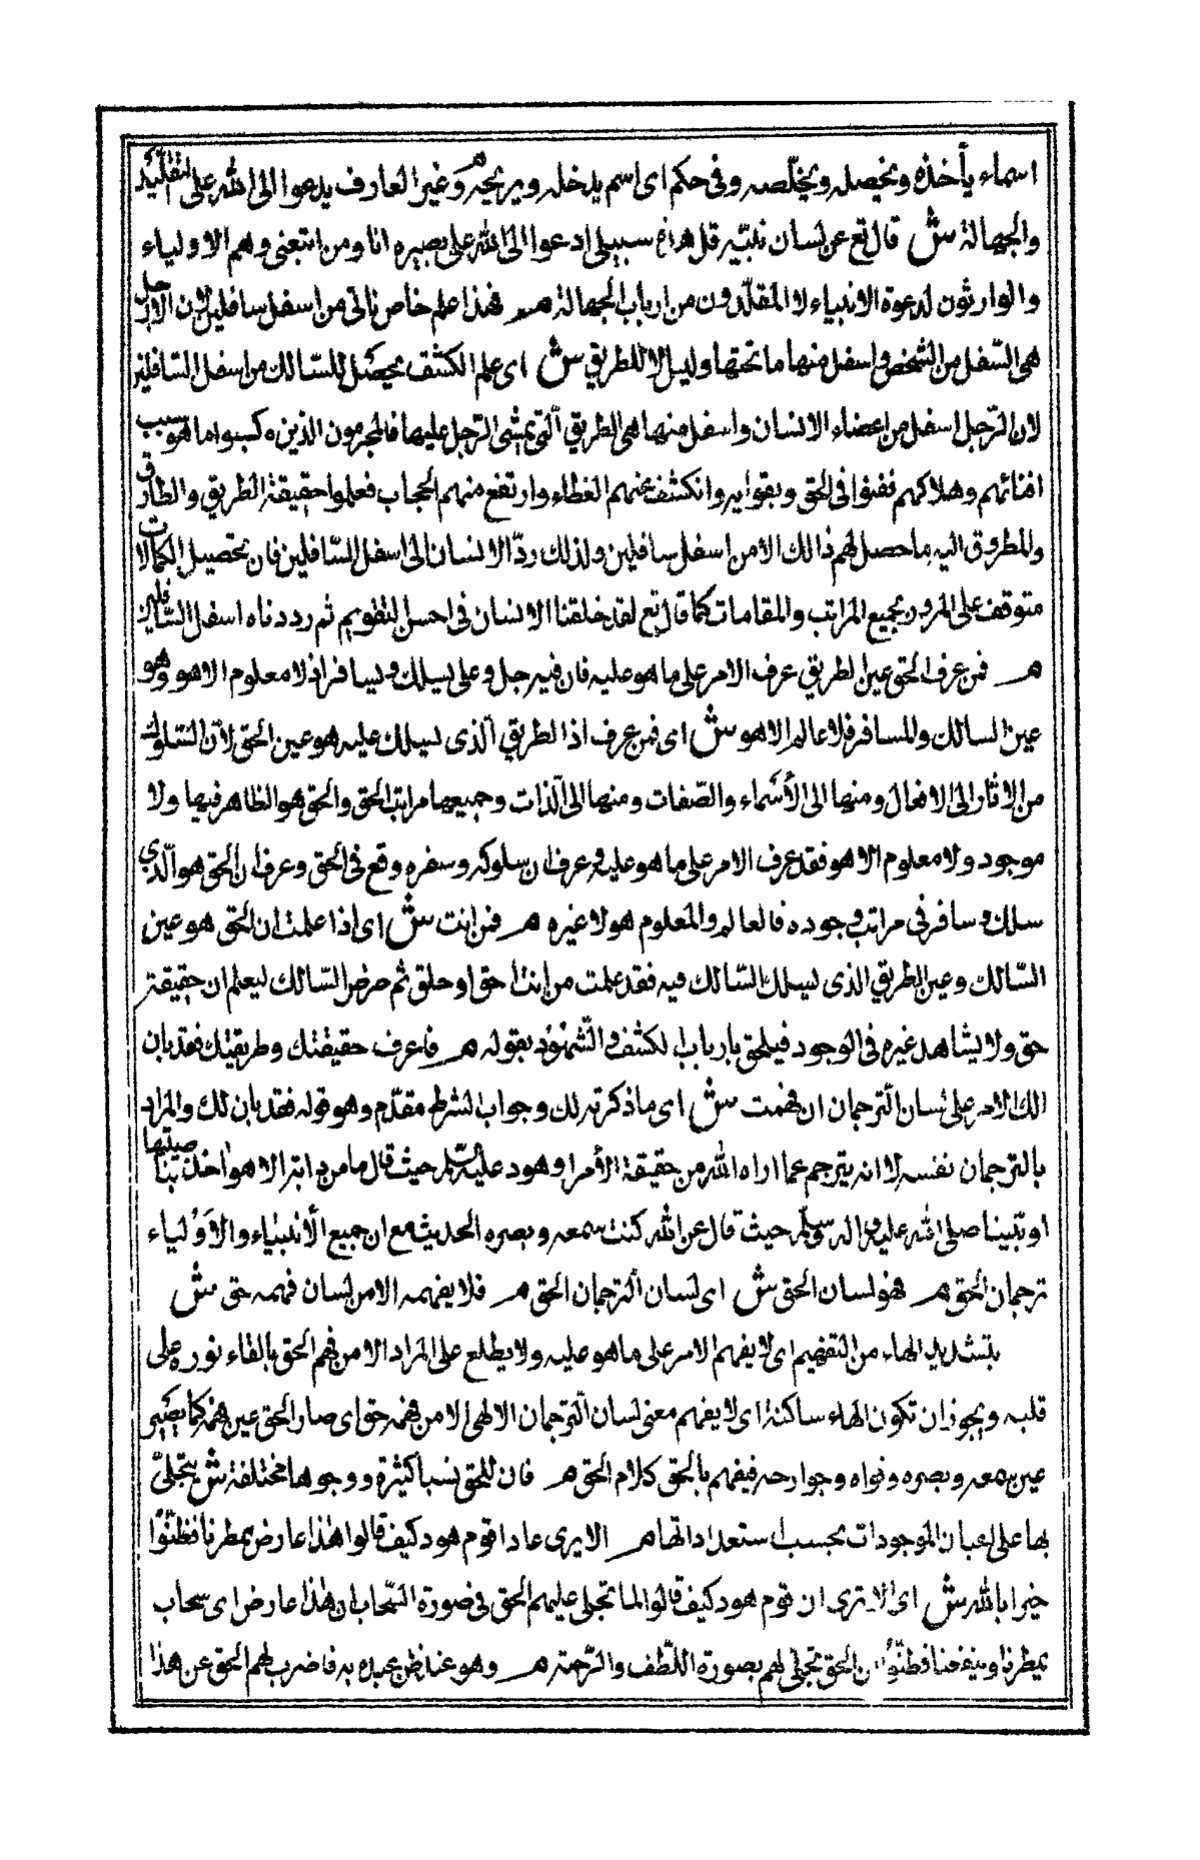 اسماء يأخذه ويحصله ويخلّصه وفى حكم اى اسم يدخله ويربحه م وغير العارف يدعوا الى الله على التقليد
والجهالة ش قال تع عن لسان نبيّه قل هذه سبيلى ادعوا الى الله على بصيره انا ومن اتبعنى وهم الاولياء
والوارثون لدعوة الانبياء لا المقلّدون من ارباب الجهالة م فهذا علم خاص ياتى من اسفل سافلين لان الارجل
هى السّفل من الشخص واسفل منها ما تحتها وليس الا الطريق ش اى علم الكشف يحصّل للسّالك من اسفل السّافلين
لان الرّجل اسفل من اعضاء الانسان واسفل منها هى الطريق الّتى يمشى الرّجل عليها فالمجرمون الذين كسبوا ما هو سبب
افنائهم وهلاكهم ففنوا فى الحق وبقوا به وانكشف عنهم الغطاء وارتفع منهم الحجاب فعلموا حقيقة الطريق والطارق
والمطروق اليه ما حصل لهم ذالك الا من اسفل سافلين ولذلك ردّ الانسان الى اسفل السّافلين فان تحصيل الكمالات
متوقف على المرور بجميع المراتب والمقامات كما قال تع لقد خلقنا الانسان فى احسن التقويم ثم رددناه اسفل السّافلين
م فمن عرف الحق عين الطريق عرف الامر على ما هو عليه فان فيه جل وعلى يسلك ويسافر اذ لا معلوم الا هو وهو
عين السالك والمسافر فلا عالم الا هو ش اى فمن عرف اذا الطريق الّذى يسلك عليه هو عين الحق لأن السّلوك
من الاثار الى الافعال ومنها الى الأسماء والصّفات ومنها الى الّذات وجميعها مراتب الحق والحق هو الظاهر فيها ولا
موجود ولا معلوم الا هو فقد عرف الامر على ما هو عليه وعرف ان سلوكه وسفره وقع فى الحق وعرف ان الحق هو الّذي
سلك وسافر فى مراتب وجوده فالعالم والمعلوم هو لا غيره م فمن انت ش اى اذا علمت ان الحق هو عين
السّالك وعين الطريق الذى يسلك السّالك فيه فقد علمت من انت أحق او خلق ثم حرض السّالك ليعلم ان حقيقته
حق ولا يشاهد غيره فى الوجود فيلحق بارباب الكشف والشّهود بقوله م فاعرف حقيقتك وطريقتك فقد بان
لك الامر على لسان الترجمان ان فهمت ش اى ما ذكرته لك وجواب الشرط مقدّم وهو قوله فقد بان لك والمراد
بالترجمان نفسه لانه يترجم عما اراه الله من حقيقة الأمر او هود عليه السّلم حيث قال ما من دابة الا هو اخذ بناصيتها
او نبينا صلى الله عليه واله وسلّم حيث قال عن الله كنت سمعه وبصره الحديث مع ان جميع الأنبياء والأولياء
ترجمان الحق م فهو لسان الحق ش اى لسان الترجمان الحق م فلا يفهمه الا من لسان فهمه حق ش
بتشديد الهاء من التفهيم اى لا يفهم الامر على ما هو عليه ولا يطلع على المراد الا من فهم الحق بالقاء نوره على
قلبه ويجوز ان تكون الهاء ساكنة اى لا يفهم معنى لسان الترجمان الالهى الا من فهمه حق اى صار الحق عين فهمه كما يصير
عين سمعه وبصره وقواه وجوارحه فيفهم بالحق كلام الحق م فان للحق نسبا كثيرة ووجوها مختلفة ش يتجلّى
بها على اعيان الموجودات بحسب استعداداتها م الا يرى عادا قوم هود كيف قالوا هذا عارض ممطرنا فظنّوا
خيرا بالله ش اى الا ترى ان قوم هود كيف قالوا لما تجلى عليهم الحق فى صورة السّحاب ان هذا عارض اى سحاب
يمطرنا وينفعنا فظنّوا ان الحق تجلى لهم بصورة اللّطف والرّحمة م وهو عند ظن عبده به فاضرب لهم الحق عن هذا